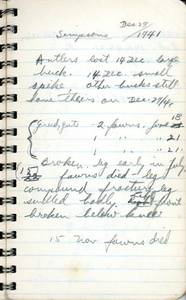 Dec 29
Simpsons 1941
Antlers lost 14 Dec. large
buck. 14 Dec. small
spike other bucks still
have theirs on Dec 29/41.
2 fawns. June 18
" " 21
" " 21
Broken leg early in July
fawns died leg
compound fracture leg
swelled badly. front
broken below knee
15 Nov fawns died